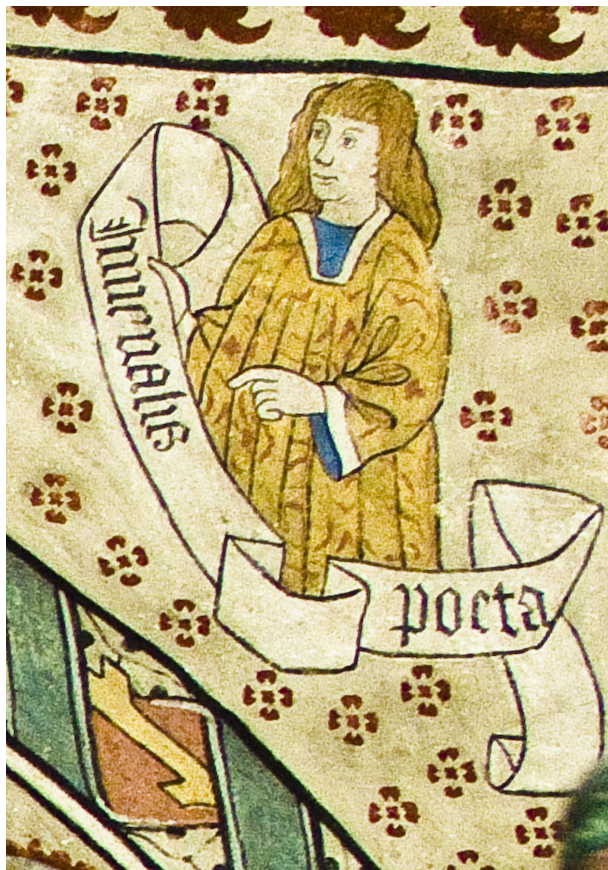 Juuenalis
poeta